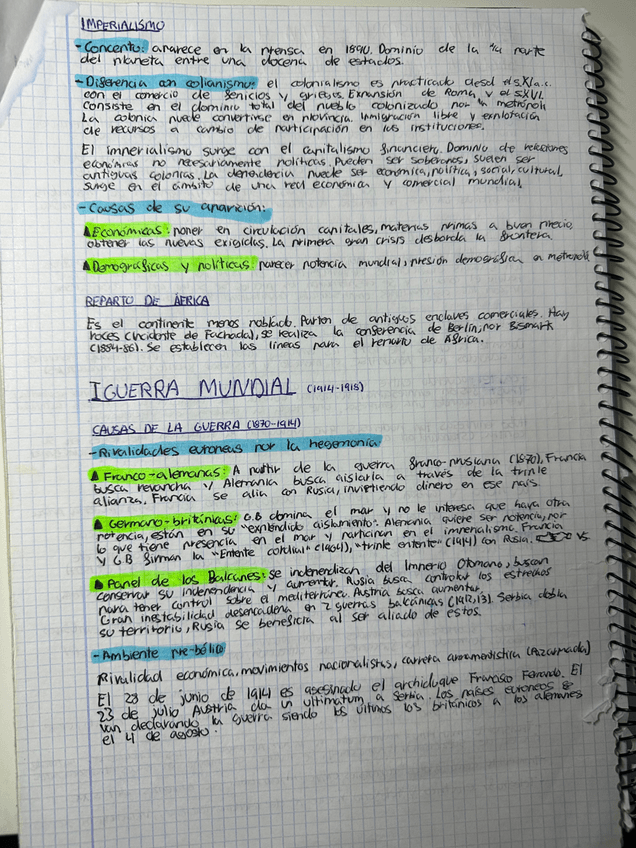 IMPERIALISMO
- Concepto: aparece en la prensa en 1890. Dominio de la 1/4 parte
del planeta entre una docena de estados.
- Diferencia con colianismo: el colonialismo es practicado desd el s.XI a.c.
con el comercio de fenicios y griegos. Expansión de Roma, y el s.XVI.
Consiste en el dominio total del pueblo colonizado por la metrópoli
La colonia puede convertirse en provincia. Inmigración libre y explotación
de recursos a cambio de participación en las instituciones.
El imperialismo surge con el capitalismo financiero. Dominio de relaciones
económicas no necesariamente políticas. Pueden ser soberanos, suelen ser
antiguas colonias. La dependencia puede ser económica, política, social, cultural,
surge en el ámbito de una red económica y comercial mundial.
- Causas de su aparición:
▲ Económicas: poner en circulación capitales, materias primas a buen precio,
obtener las nuevas exigidas. La primera gran crisis desborda la frontera.
▲ Demográficas y políticas: parecer potencia mundial, presión demográfica en metrópoli
REPARTO DE ÁFRICA
Es el continente menos poblado. Parten de antiguos enclaves comerciales. Hay
roces (incidente de Fachoda), se realiza la conferencia de Berlín, por Bismark
(1884-86). Se establecen las líneas para el reparto de África.
I GUERRA MUNDIAL (1914-1918)
CAUSAS DE LA GUERRA (1870-1914)
- Rivalidades europeas por la hegemonía
▲ Franco-alemanas: A partir de la guerra franco-prusiana (1870), Francia
busca revancha y Alemania busca aislarla a través de la triple
alianza. Francia se alia con Rusia, invirtiendo dinero en ese país
▲ Germano-británicas: G.B domina el mar y no le interesa que haya otra
potencia, están en su "expléndido aislamiento". Alemania quiere ser potencia, por
lo que tiene presencia en el mar y participan en el imperialismo. Francia
y G.B firman la "Entente cordial" (1904), "triple entente" (1914) con Rusia. vs
▲ Panel de los Balcanes: se independizan del Imperio Otomano, buscan
conservar su independencia y aumentar. Rusia busca controlar los estrechos
para tener control sobre el mediterráneo. Austria busca aumentar.
Gran inestabilidad desencadena en 2 guerras balcánicas (1912,13). Serbia dobla
su territorio, Rusia se beneficia al ser aliado de estos.
- Ambiente pre-bélico
Rivalidad económica, movimientos nacionalistas, carrera armamentística (Paz armada)
El 28 de junio de 1914 es asesinado el archiduque Francisco Fernando. El
23 de julio Austria da un ultimatum a Serbia. Los países europeos se
van declarando la guerra siendo los últimos los británicos a los alemanes
el 4 de agosto.